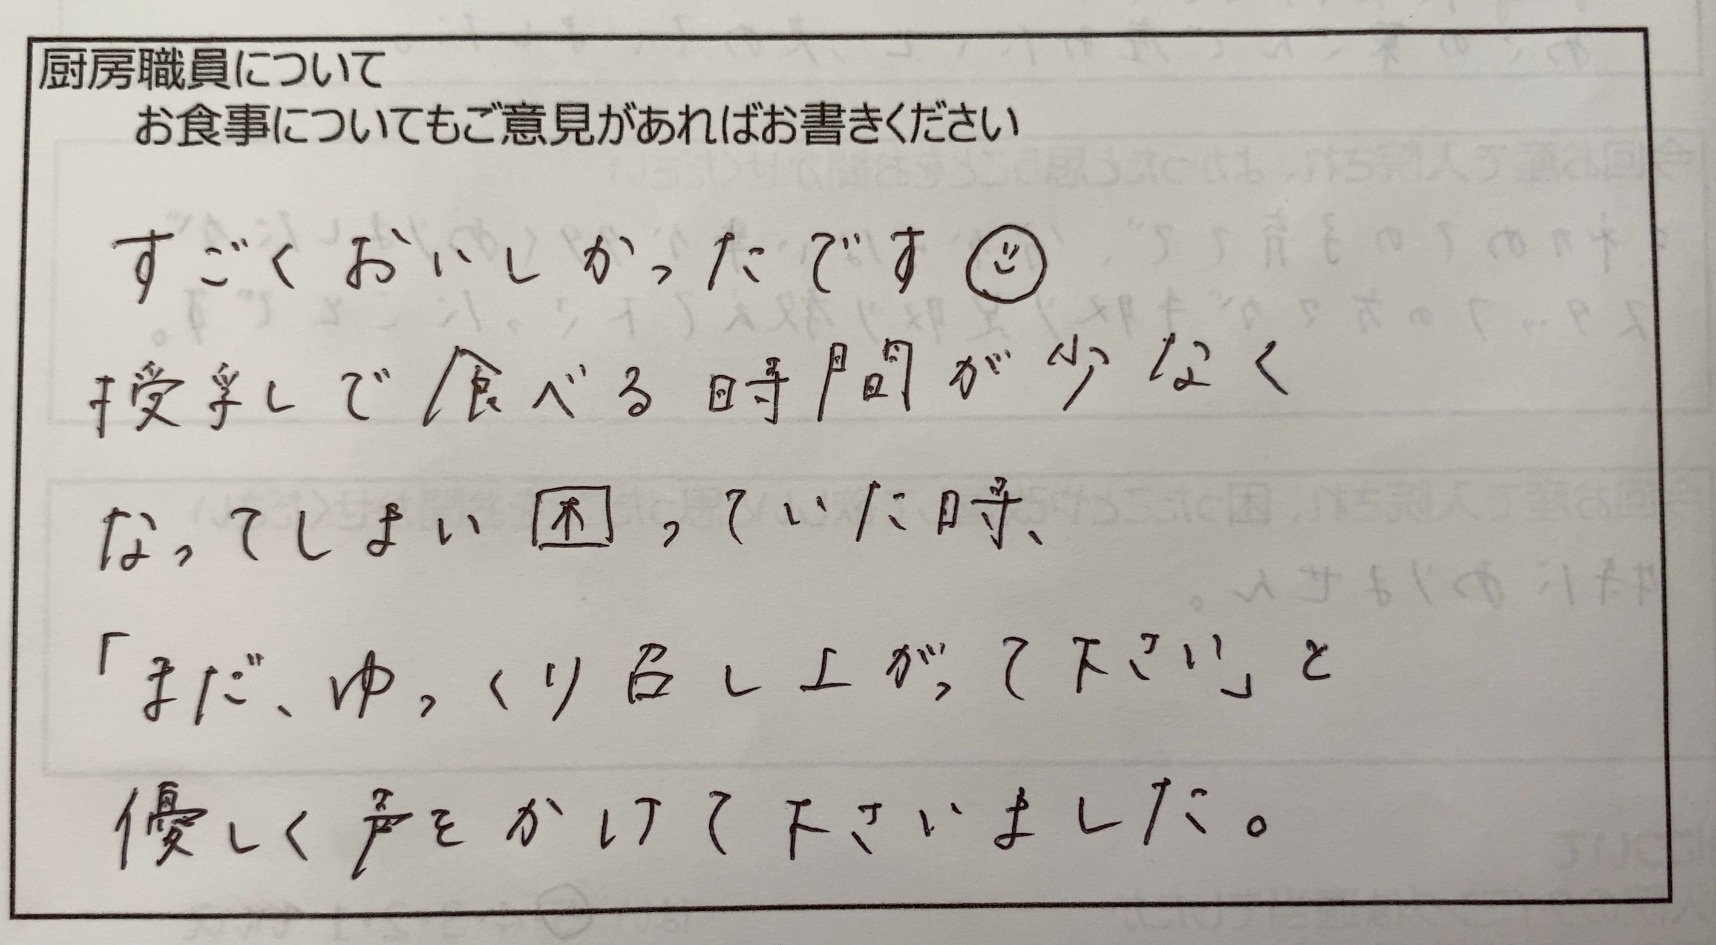 厨房職員について
お食事についてもご意見があればお書きください
すごくおいしかったです
授乳しで食べる時間が少なく
なってしまい困っていた時、
「まだ、ゆっくり召し上がって下さい」と
優しく声をかけて下さいました。